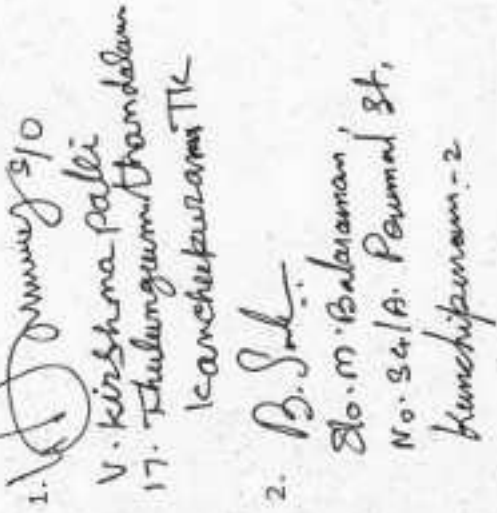 1. S/O
V. Kirshna palli
17. Thulungum thandalam
Kancheepuram TK
2. B.
S/o. M. Balaraman,
No. 34/A. Perumal St,
Kunchipuram-2